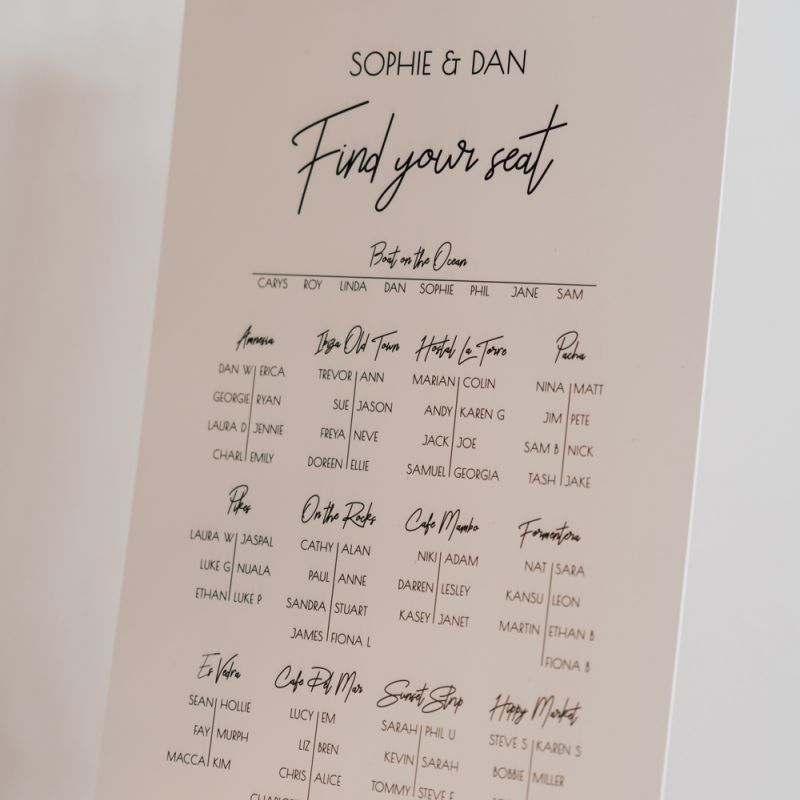 SOPHIE & DAN
Find your seat
Boat on the Ocean
CARYS ROY LINDA DAN SOPHIE PHIL JANE SAM
Amnesia
DAN W ERICA
GEORGIE RYAN
LAURA D JENNIE
CHARL EMILY
Ibiza Old Town
TREVOR ANN
SUE JASON
FREYA NEVE
DOREEN ELLIE
Hostal La Torre
MARIAN COLIN
ANDY KAREN G
JACK JOE
SAMUEL GEORGIA
Pacha
NINA MATT
JIM PETE
SAM B NICK
TASH JAKE
Pikes
LAURA W JASPAL
LUKE G NUALA
ETHAN LUKE P
On the Rocks
CATHY ALAN
PAUL ANNE
SANDRA STUART
JAMES FIONA L
Cafe Mambo
NIKI ADAM
DARREN LESLEY
KASEY JANET
Formentera
NAT SARA
KANSU LEON
MARTIN ETHAN B
FIONA B
Es Vedra
SEAN HOLLIE
FAY MURPH
MACCA KIM
Cafe Del Mar
LUCY EM
LIZ BREN
CHRIS ALICE
Sunset Strip
SARAH PHIL U
KEVIN SARAH
TOMMY STEVE
Hippy Market
STEVE S KAREN S
BOBBIE MILLER